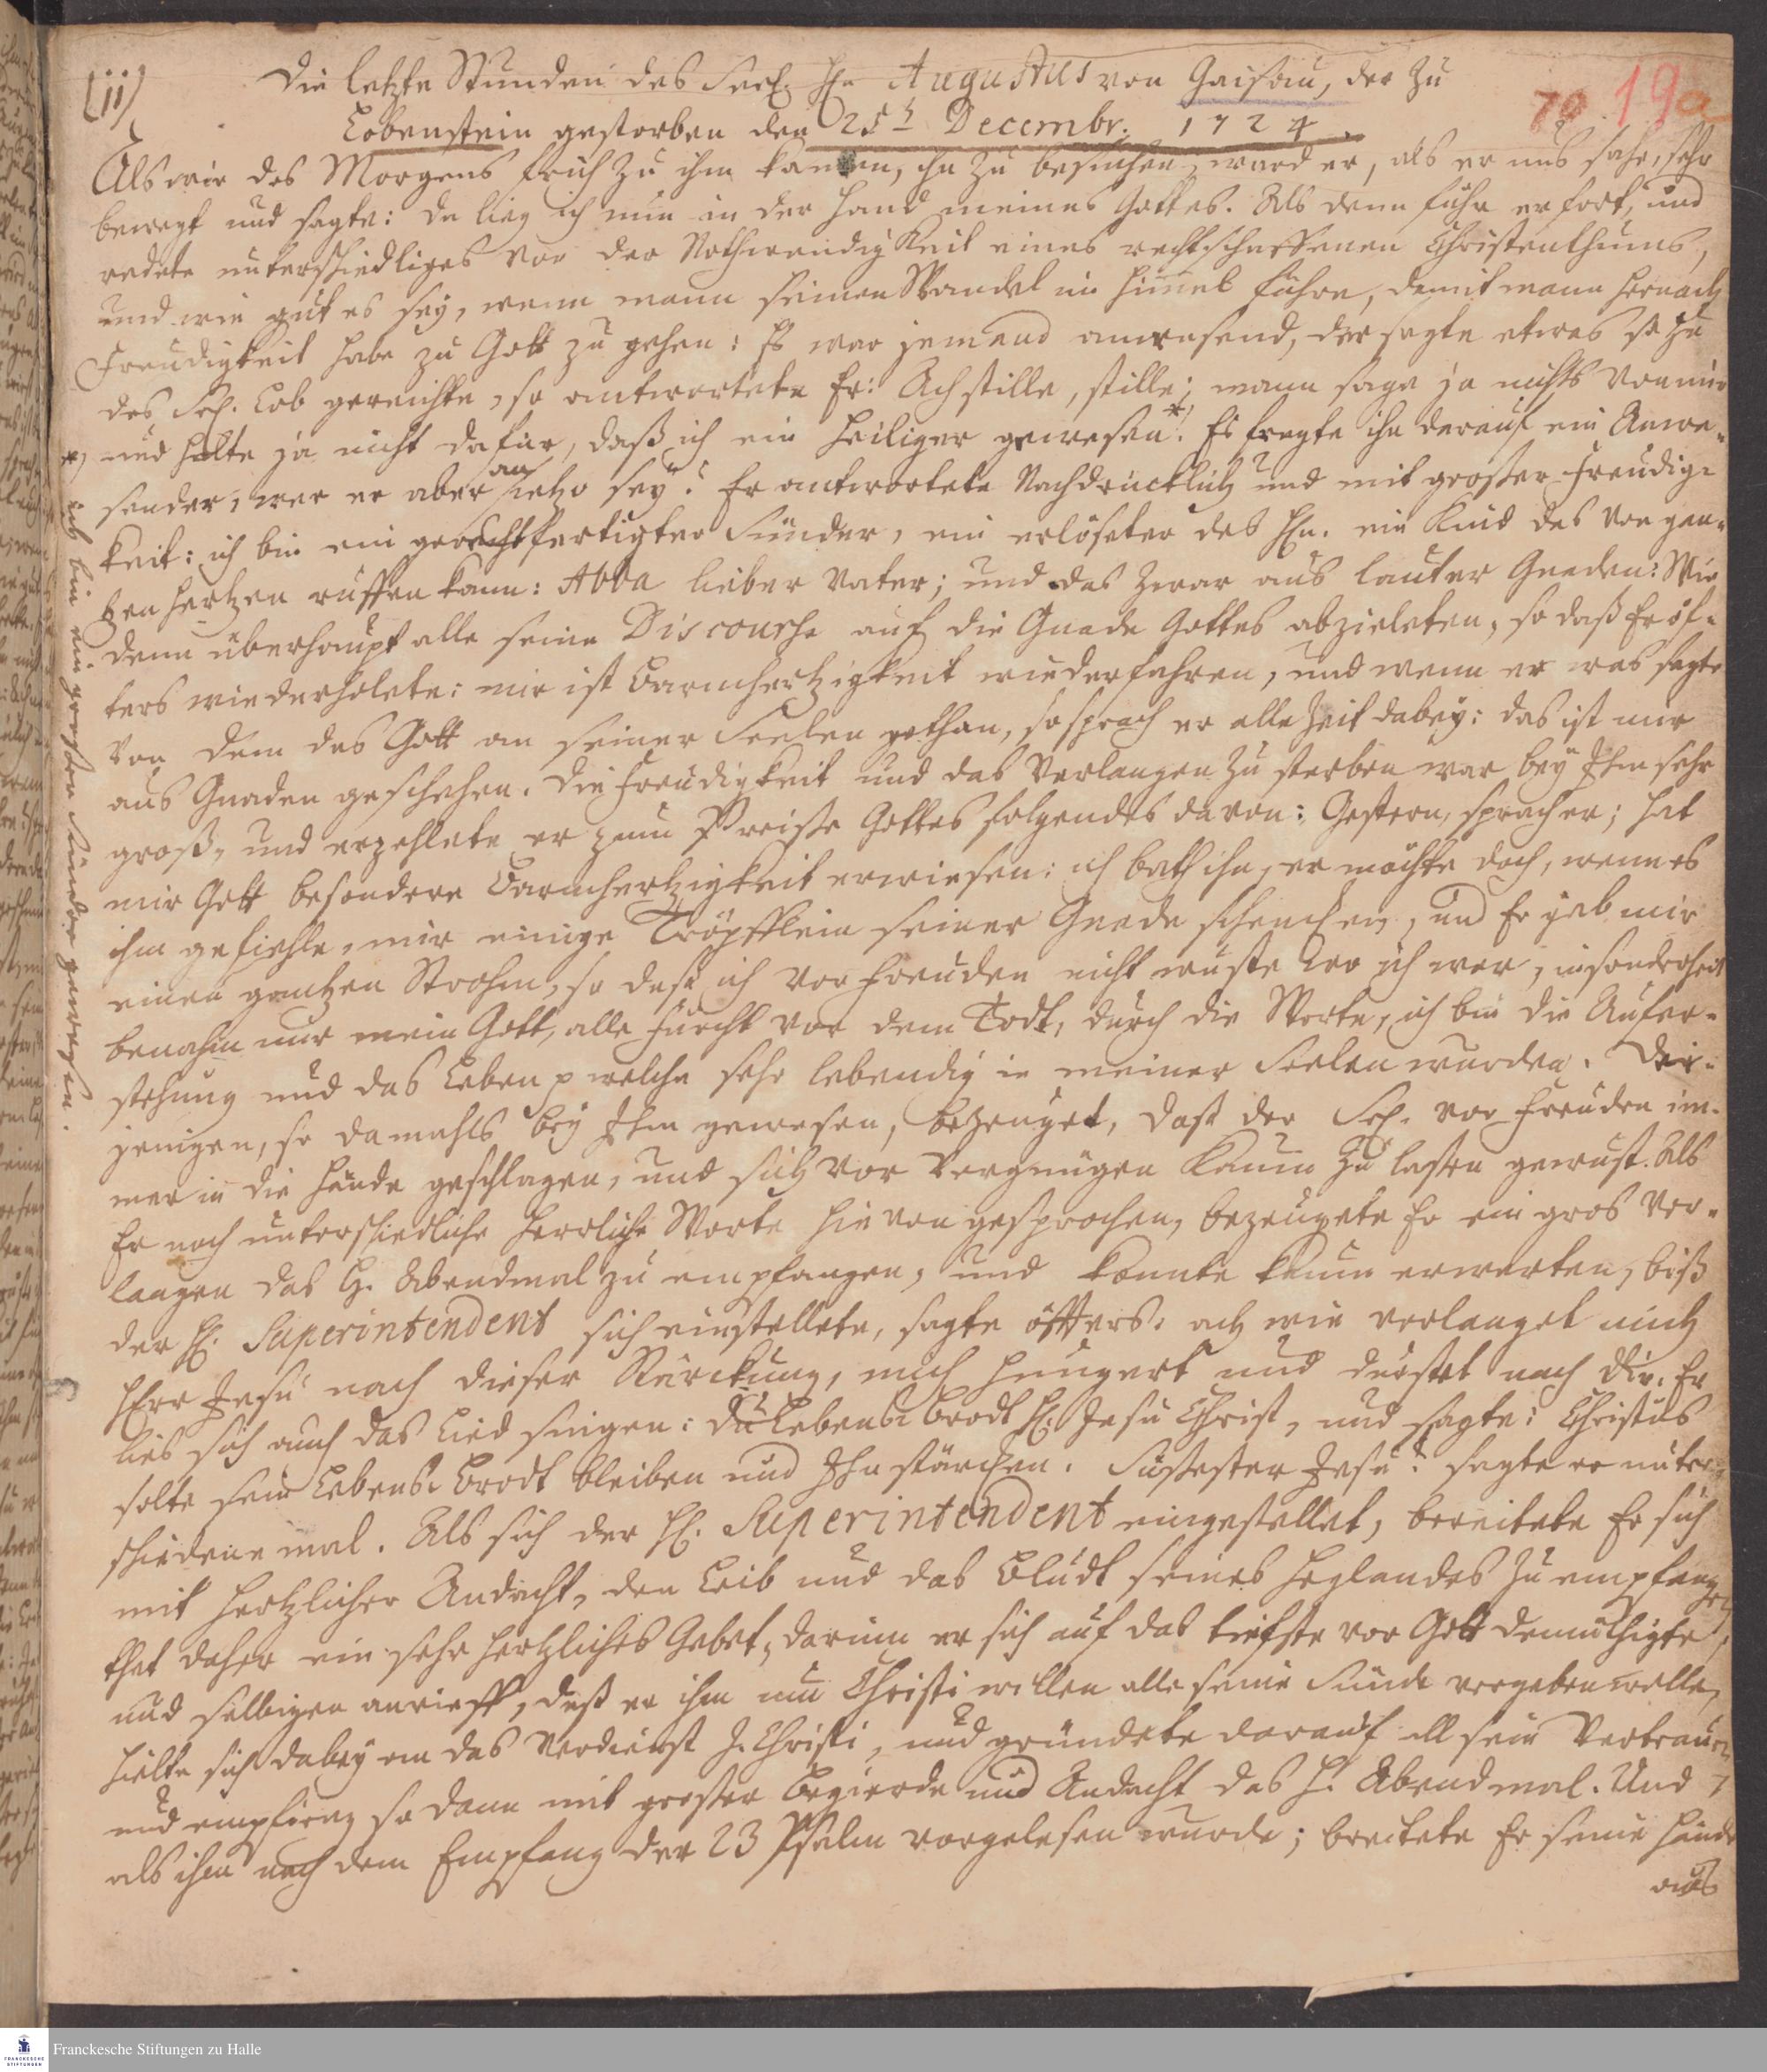 (ii)
Die letzte Stunden des Seel. Hn Augustus von Gaisau, der zu
70. 19a
Lobenstein gestorben den 25t Decembr. 1724.
Als wir des Morgens früh zu ihm kamen, ihn zu besuchen, ward er, als er uns sahe, sehr
bewegt und sagte: da lieg ich nun in der Hand meines Gottes. Als denn fuhr er fort, und
redete unterschiedliches von der Nothwendigkeit eines rechtschaffenen Christenthums,
und wie gut es sey, wenn mann seinen Wandel im Himmel führe, damit mann hernach
Freudigkeit habe zu Gott zu gehen: Es war jemand anwesend, der sagte etwas so zu
des Sel. Lob gereichte, so antwortete Er: Ach stille, stille; mann sage ja nichts von mir
und halte ja nicht dafür, daß ich ein Heiliger gewesen.*) Es fragte ihn darauf ein Anwe-
sender, wer er aber an ietzo sey? Er antwortete Nachdrücklich und mit großer Freudig-
keit: ich bin ein gerechtfertigter Sünder, ein erlöseter des Hn. ein Kind das von gan-
zen Hertzen ruffen kann: Abba lieber Vater; und das zwar aus lauter Gnaden: Wie
denn überhaupt alle seine Discourse auf die Gnade Gottes abzieleten, so daß Er öf-
ters wiederholete: mir ist Barmhertzigkeit wiederfahren, und wenn er was sagte
von dem das Gott an seiner Seelen gethan, so sprach er alle Zeit dabey: das ist mir
aus Gnaden geschehen. Die Freudigkeit und das Verlangen zu sterben war bey Ihm sehr
groß, und erzehlete er zum Preiße Gottes folgendes davon: Gestern, sprach er; hat
mir Gott besondere Barmhertzigkeit erwiesen: ich bath ihn, er möchte doch, wenn es
ihm gefiehle, mir einige Tröpfflein seiner Gnade schencken, und Er gab mir
einen gantzen Strohm, so daß ich vor Freuden nicht wuste wo ich war, insonderheit
benahm mir mein Gott, alle Furcht vor dem Todt, durch die Worte, ich bin die Aufer-
stehung und das Leben p welche sehr lebendig in meiner Seelen wurden. Die-
jenigen, so damahls bey Ihm gewesen, bezeuget, daß der Sel. vor Freuden im-
mer in die Hände geschlagen, und sich vor Vergnügen kaum zu laßen gewust. Als
Er noch unterschiedliche herrliche Worte hievon gesprochen, bezeugete Er ein gros Ver-
langen das H. Abendmal zu empfangen, und konnte kaum erwarten, biß
der H. Superintendent sich einstellete, sagte öffters: ach wie verlanget mich
HErr Jesu nach dieser Stärckung, mich hungert und dürstet nach dir. Er
lies sich auch das Lied singen: Du Lebens Brodt H. Jesu Christ, und sagte: Christus
solte sein Lebens Brodt bleiben und Ihn stärcken. Süßester Jesu! sagte er unter-
schiedene mal. Als sich der H. Superintendent eingestellet, bereitete Er sich
mit hertzlicher Andacht, den Leib und das Bludt seines Heylandes zu empfangen
that daher ein sehr hertzliches Gebet, darinn er sich auf das tiefste vor Gott demüthigte,
und selbigen anrieff, daß er ihm um Christi willen alle seine Sünde vergeben wolle,
hielte sich dabey an das Verdienst J. Christi, und gründete darauf all sein Vertrauen
und empfieng so dann mit großer Begierde und Andacht das H. Abendmal. Und
als ihm nach dem Empfang der 23 Psalm vorgelesen wurde; breitete Er seine Hände
aus
*) ich bin ein großer Sünder gewesen.
Franckesche Stiftungen zu Halle
FRANCKESCHE
STIFTUNGEN